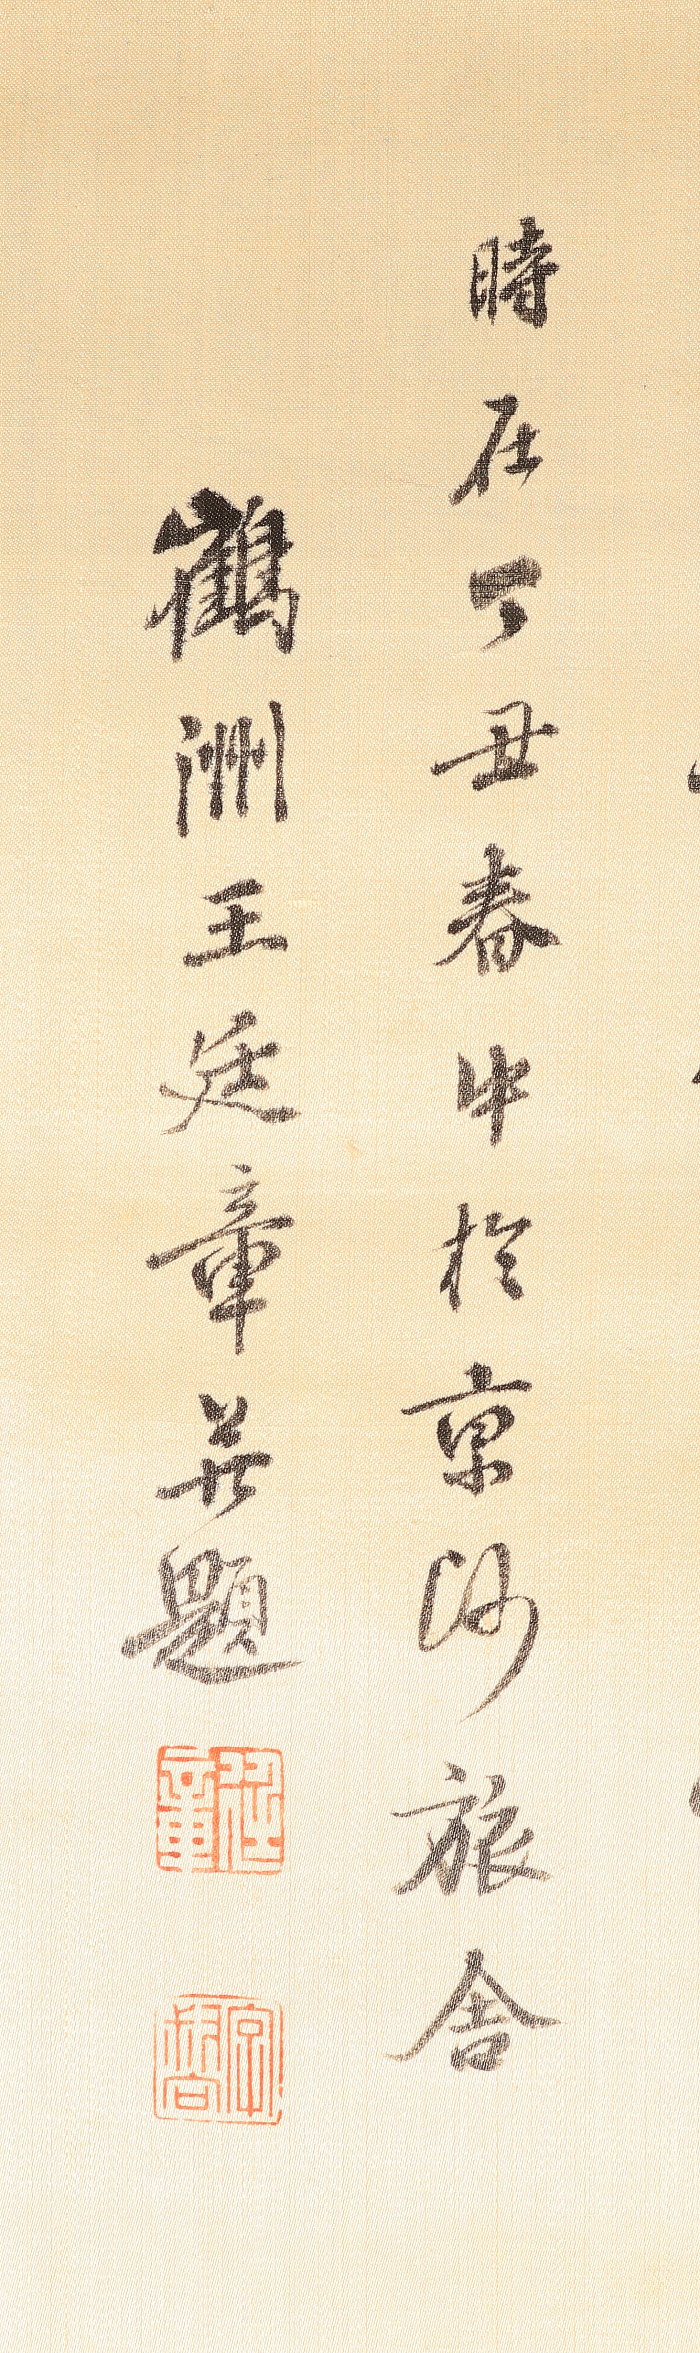 時在丁丑春中於京師旅舍
鶴洲王廷章並題
廷章